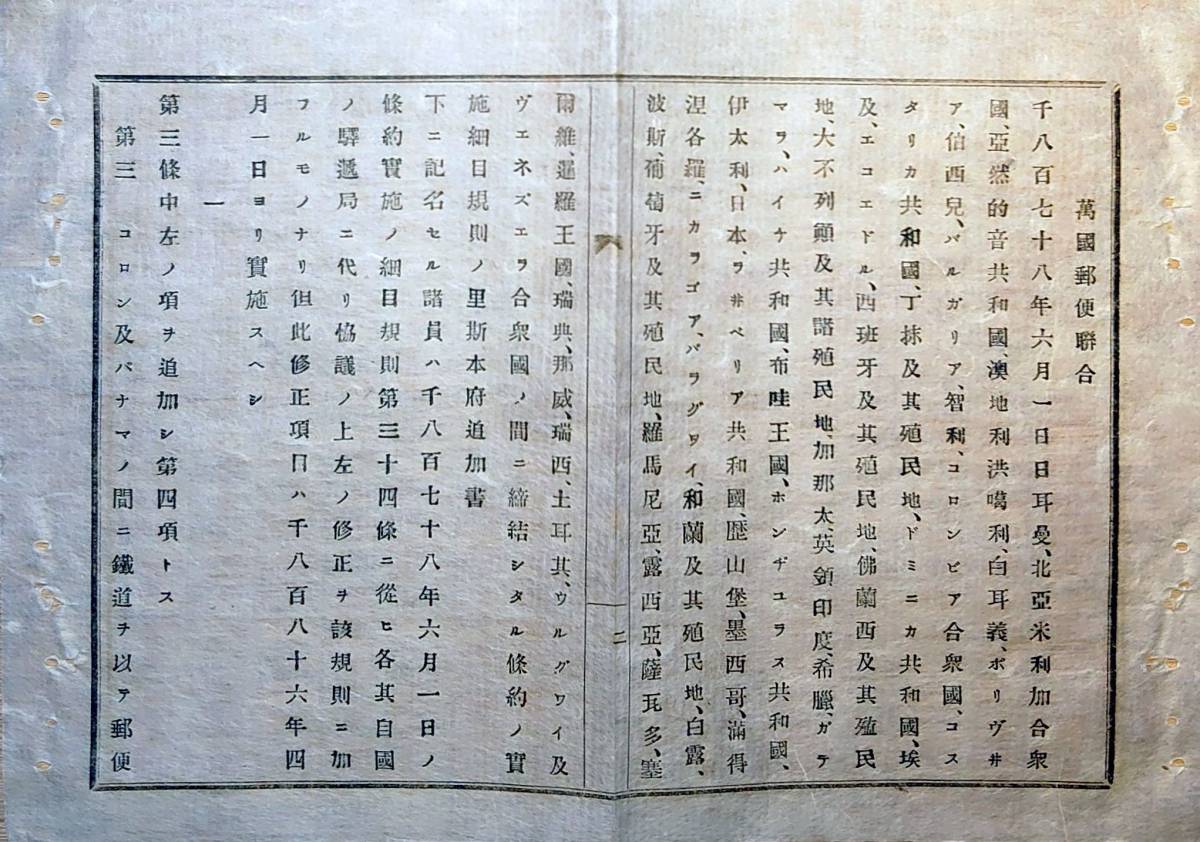 萬國郵便聯合
千八百七十八年六月一日日耳曼、北亞米利加合衆
國、亞然的音共和國、澳地利洪噶利、白耳義、ボリヴ井
ア、伯西兒、バルガリア、智利、コロンビア合衆國、コス
タリカ共和國、丁抹及其殖民地、ドミニカ共和國、埃
及、エコエドル、西班牙及其殖民地、佛蘭西及其殖民
地、大不列顛及其諸殖民地、加那太、英領印度、希臘、ガテ
マラ、ハイチ共和國、布哇王國、ホンヂユラス共和國、
伊太利、日本、ラ井ベリア共和國、歴山堡、墨西哥、滿得
涅各羅、ニカラゴア、バラグワイ、和蘭及其殖民地、白露、
波斯、葡萄牙及其殖民地、羅馬尼亞、露西亞、薩瓦多、塞
二
爾維、暹羅王國、瑞典、那威、瑞西、土耳其、ウルグワイ及
ヴエネズエラ合衆國ノ間ニ締結シタル條約ノ實
施細目規則ノ里斯本府追加書
下ニ記名セル諸員ハ千八百七十八年六月一日ノ
條約實施ノ細目規則第三十四條ニ從ヒ各其自國
ノ驛遞局ニ代リ協議ノ上左ノ修正ヲ該規則ニ加
フルモノナリ但此修正項目ハ千八百八十六年四
月一日ヨリ實施スヘシ
一
第三條中左ノ項ヲ追加シ第四項トス
第三 コロン及バナマノ間ニ鐵道ヲ以テ郵便